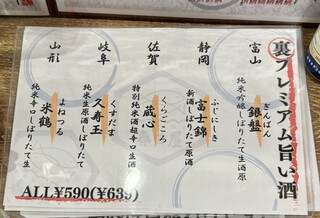 裏プレミアム旨い酒
富山
ぎんばん
銀盤
純米吟醸しぼりたて生酒原
静岡
ふじにしき
富士錦
新酒しぼりたて原酒
佐賀
くらごころ
蔵心
特別純米酒超辛口生酒
岐阜
くすだま
久寿玉
純米生原酒しぼりたて
山形
よねつる
米鶴
純米辛口しぼりたて生
ALL¥590(¥639)